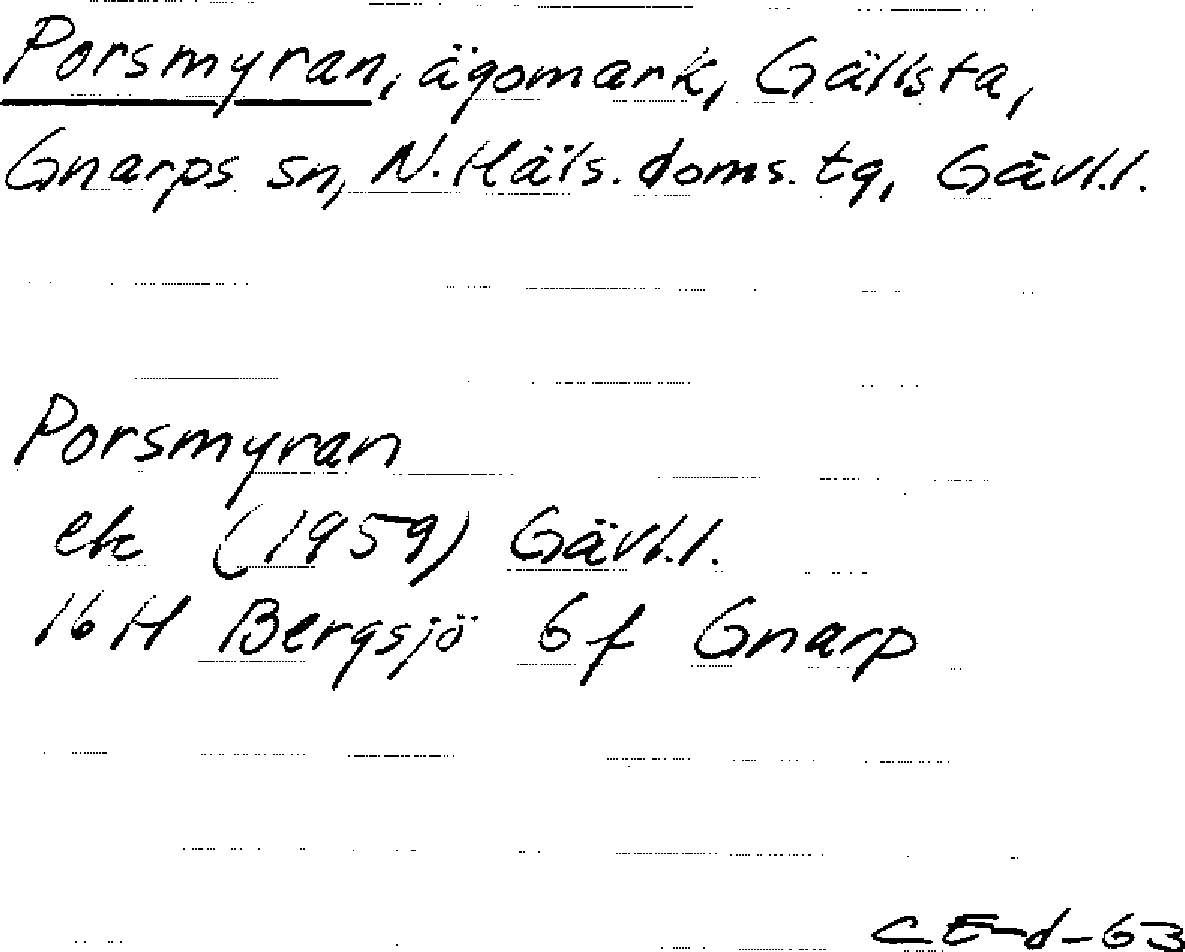 Porsmyran, ägomark, Gällsta,
Gnarps sn, N. Häls. doms. tg, Gävl.l.
Porsmyran
ek (1959) Gävl.l.
16 H Bergsjö 6 f Gnarp
CE-d-63